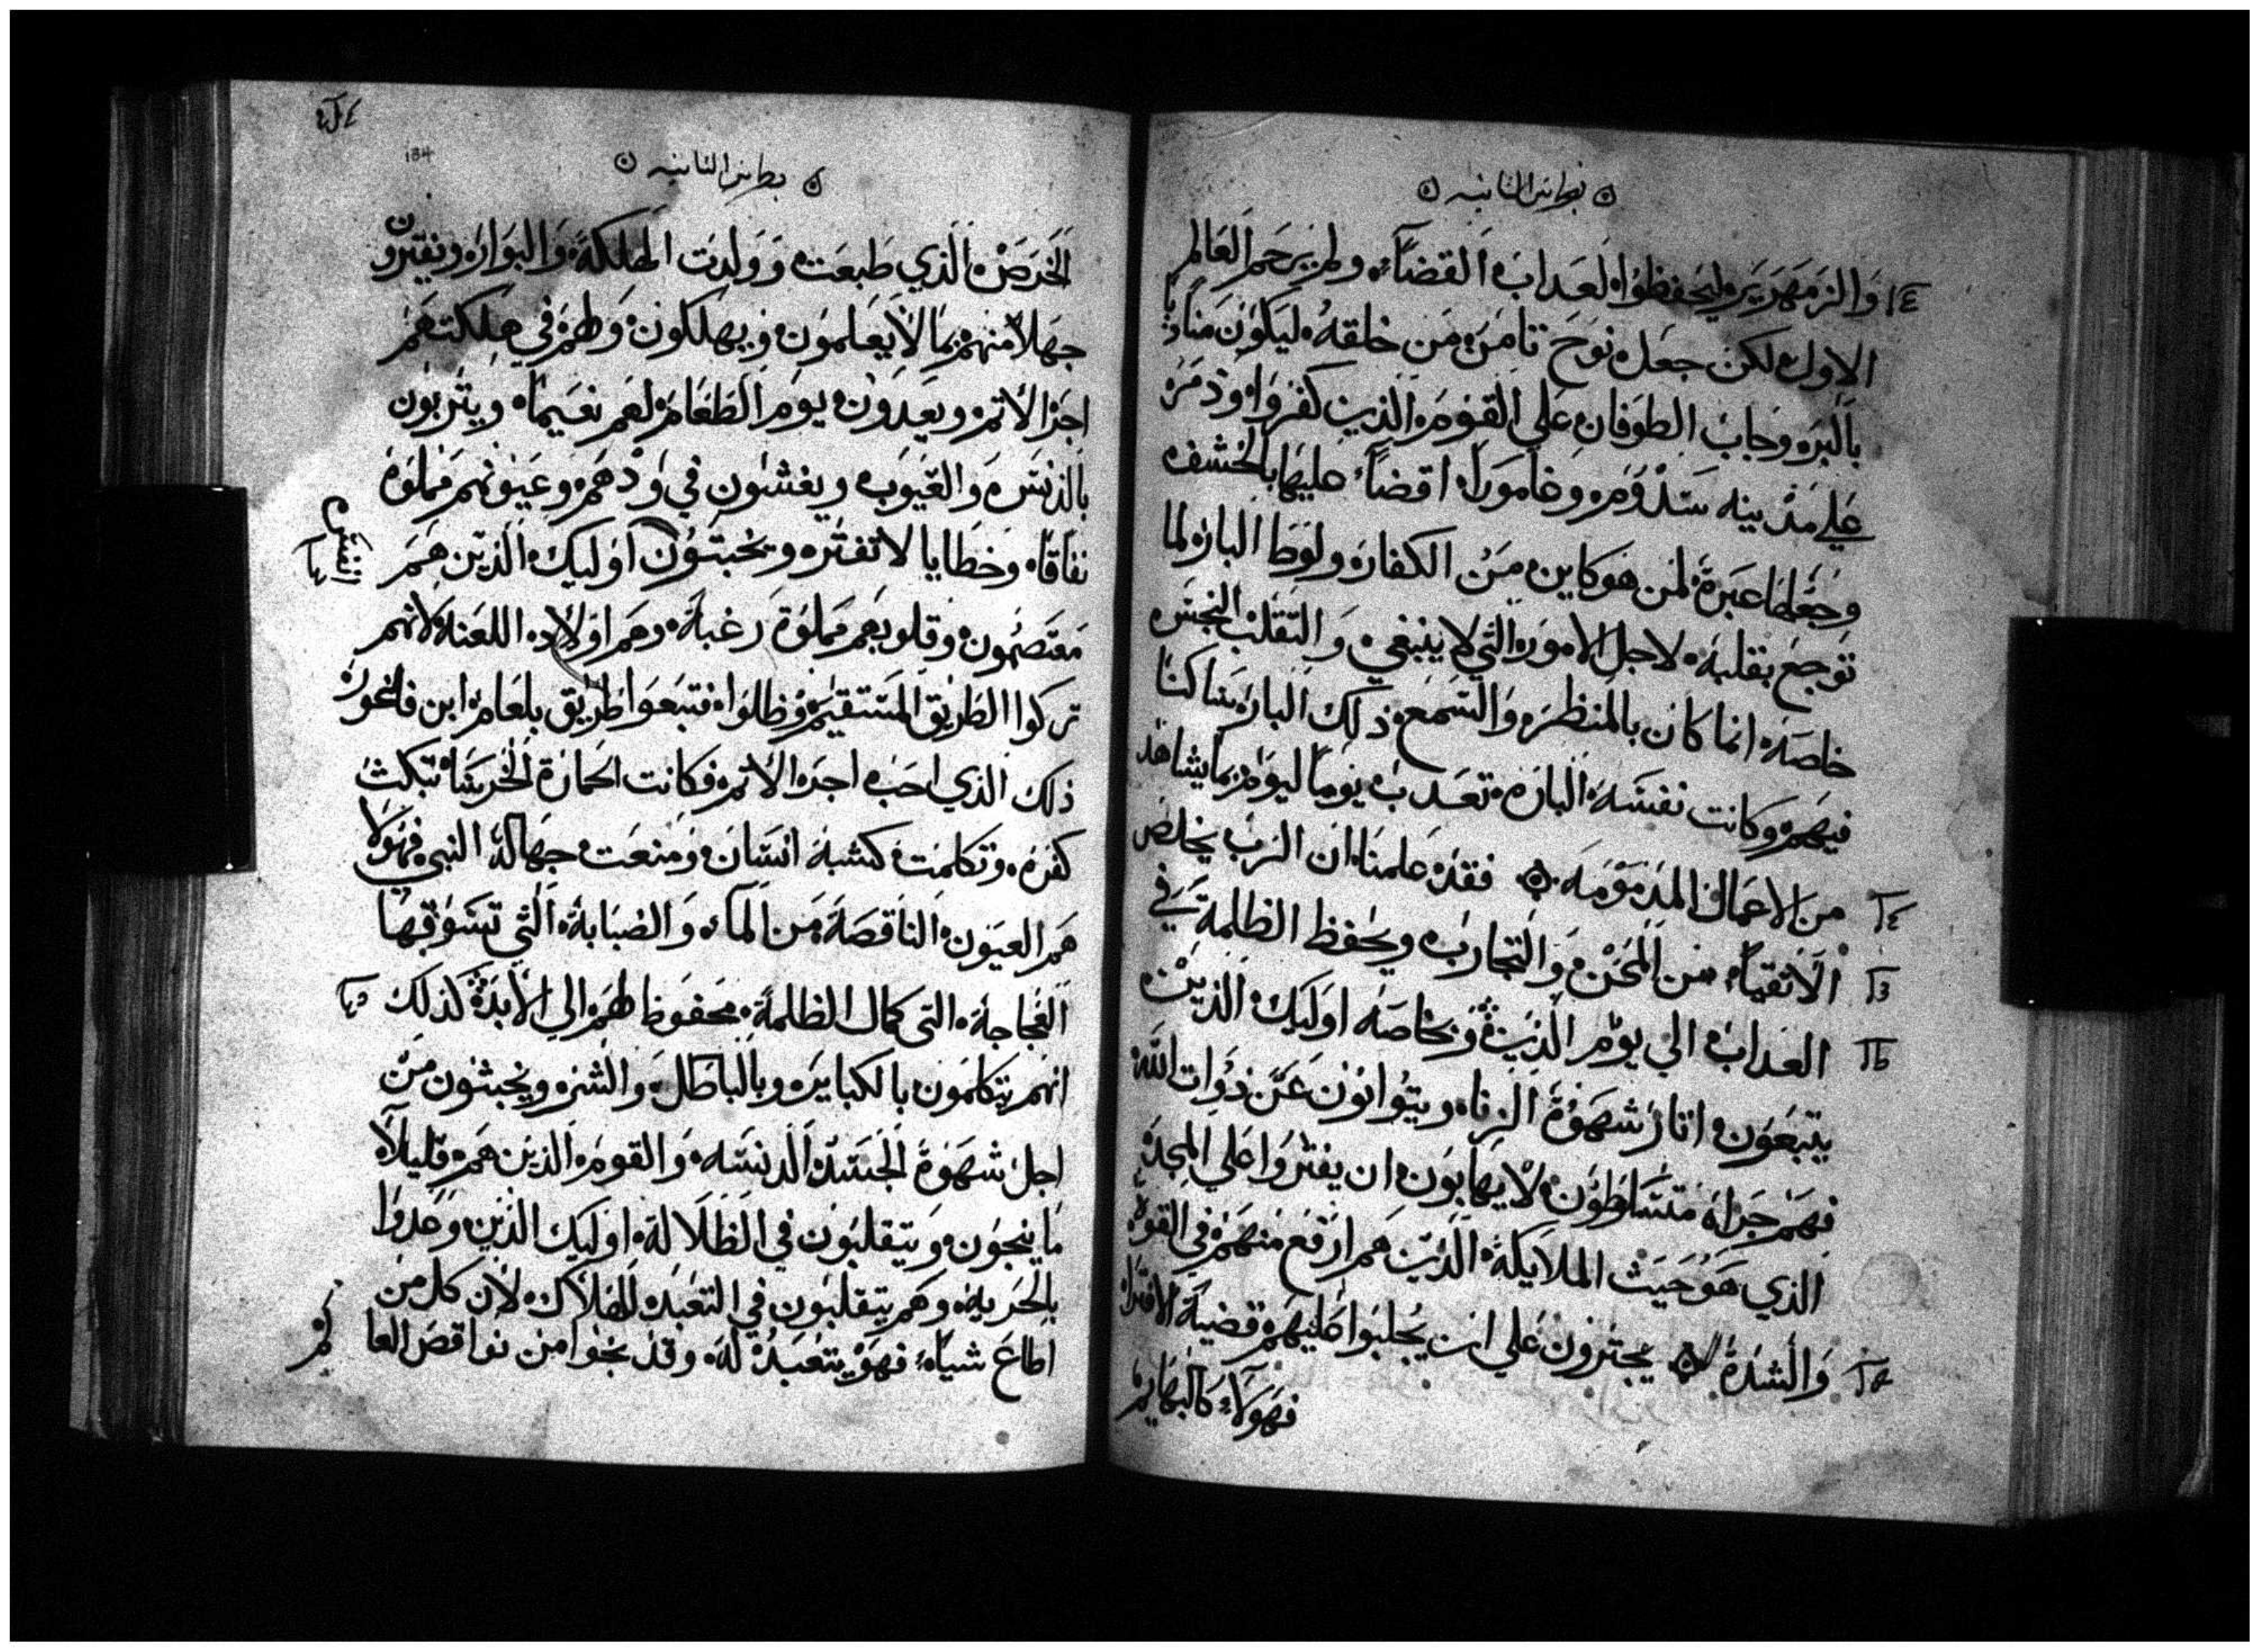 بطرس الثانيه
وَالزمَهَرير ليَحفظوا لعَداب القضاء ولم يَرحَم العَالم
الاول لكن جعَل نوَحَ تامَن مَن خلقهُ ليَكوُن مناديا
بالبره وجَابَ الطوَفان عَلي القوَمَ الذين كفروَا وَدمَرَ
عَلي مدَينه سَدُوُمَ وغامورَاه اقضاً عليهَا بالخسْف
وجَعَلهَا عبَرةً لمَن هوَكاين مِنَ الكفاره ولوَطَ الباره لما
توَجعَ بقلبهَ لاجل الامور التي لا ينبغي وَالتقلبَ النجسَ
خاصَه انما كان بالمنظرَ والسَمعَ ذلك البارَ ساكنا
فيهمَ وكانت نفسَهَ البارَه تعَدب يوماً ليوَم بمَا يشاهد
من الاعمَال المذمَوَمه فقد عَلمنا ان الربَ يخلص
الاتقيَاء من المحَن وَالتجَاربَ ويحفظ الظلمة في
العَدابَ الي يوَم الدينَ وَبخاصَه اوَليك الذين
يتبعَون اتار شهوَةَ الزناه ويتوُانوُن عَن ذوَات الله
فهَم جَراه متسَلطوُن لا يهَابوَن ان يفتروَا عَلي المجدَ
الذي هَوَ حَيث الملايكة الذين هَم ارَفعَ منهَم في القوَة
وَالشدَة يجترون عَلي ان يجلبوَا عَليهمَ قضيَة الافترا
فهَولاَء كالبهَايم
بطرس الثانيه
184
الخرصَ الذي طبعَت وَولدَت الهلكَه وَالبوَار ويفترون
جهَلاً منهم بمَا لا يعَلموَن وَيهلكون وَلهمَ في هلكتهمَ
اجرَ الاثم ويعَدون يوم الطعَام لهم نعَيماً ويتربون
بالدنسَ وَالعيَوب ويغشون في وَدهمَ وعَيونهم مملوَة
نفاقا وخطايا لا تفتر ويخبتوُن اوَليك الذين همَ
معَتصمون وقلوبهم مملوَة رغبة وهم اوَلاد اللعَنه لانهم
تركوا الطريق المسَتقيم وظلوا فتبعَوا طريق بلعَام ابن فاغور
ذلك الذي احَب اجر الاثم فكانت الحمارَة الخرسَا تبكت
كفرَه وتكلمَت كشبه انسَان وَمنعَت جهَالة النبي فهَولا
همَ العيوَن الناقصَة مَن المآء وَالضبابة التي تسَوقهَا
العجَاجة التي كمال الظلمة محَفوظا لهمَ الي الابدَ كذلك
انهم يتكلموَن بالكبايرَ وبالباطل وَالشر ويخبثون من
اجل شهَوَة الجسَد الدنسَه وَالقوم الذين همَ قليلاً
مَا ينجوَن وَيتقلبوَن في الظلالة اوَليك الذين وعَدوا
بالحَريه وهَم يتقلبوَن في التعَبد للهلاك لان كل من
اطاعَ شياً فهوَ يتعَبَد له وقد نجوا من نواقص العا
لم